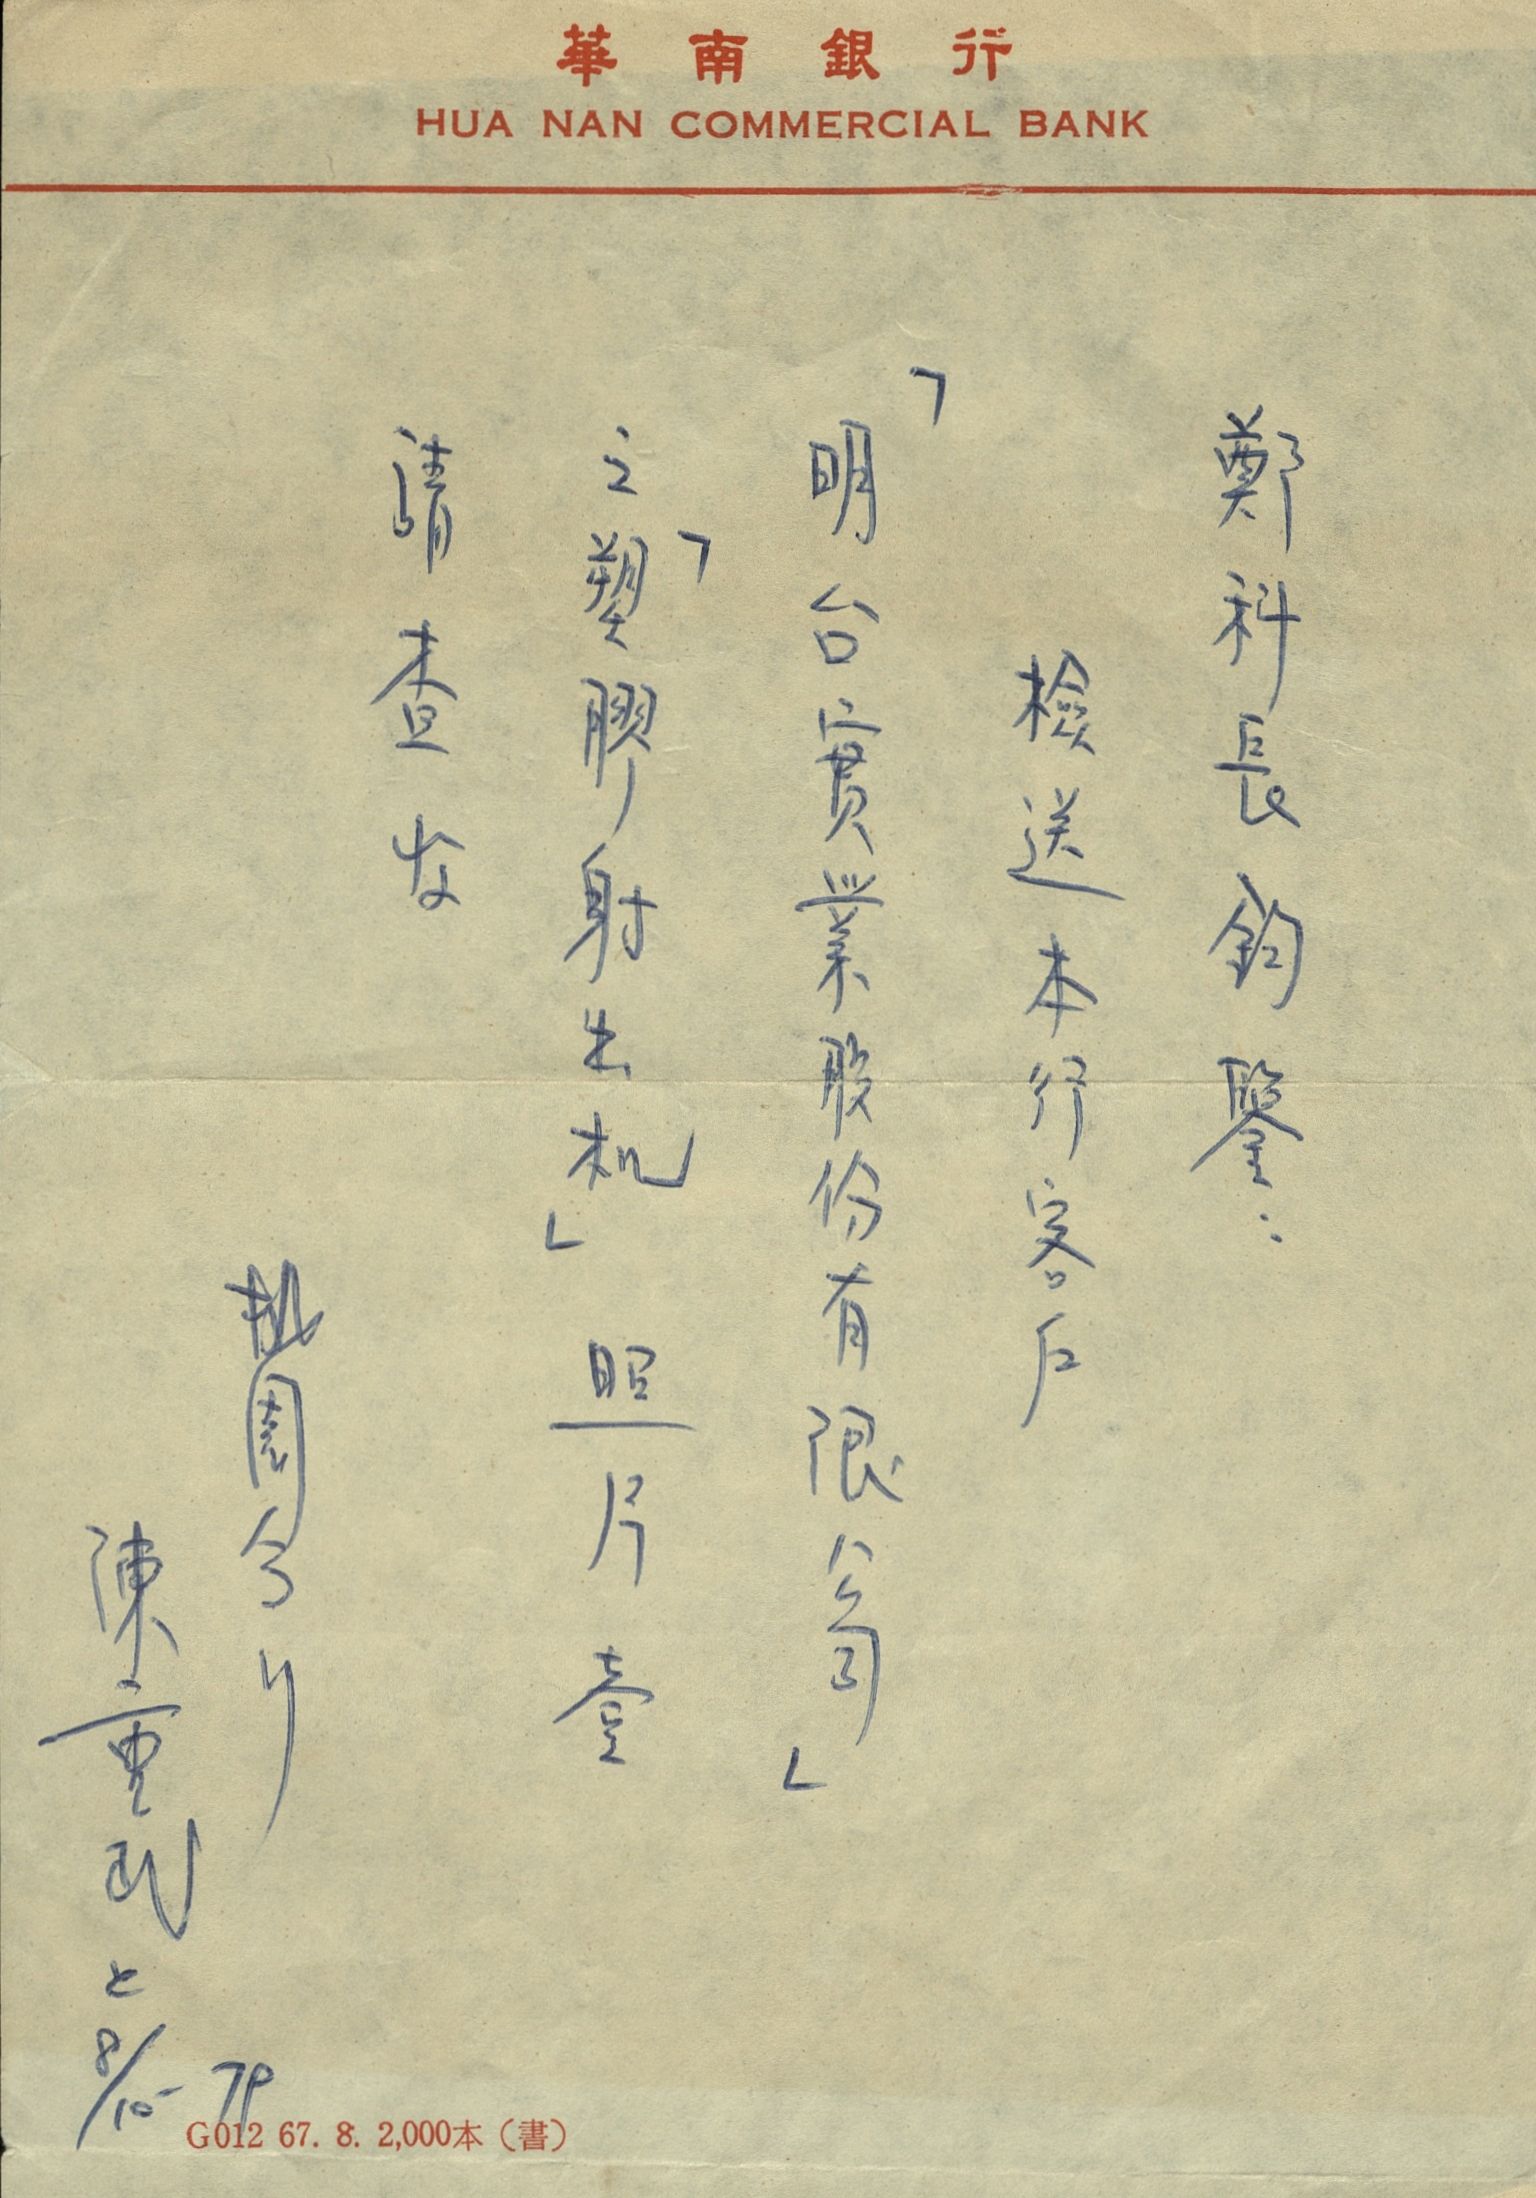 華南銀行
HUA NAN COMMERCIAL BANK
鄭科長鈞鑒:
檢送本行客戶
「明台實業股份有限公司」
之「塑膠射出机」照片壹
請查收
桃園分行
陳重
8/10 79
G012 67. 8. 2,000本（書）